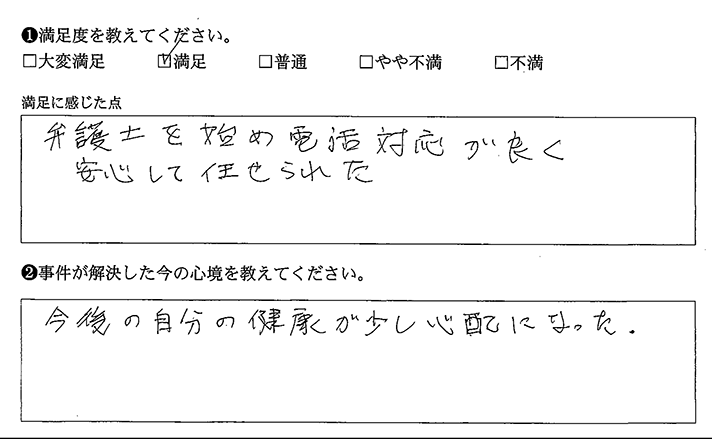 ❶満足度を教えてください。
□大変満足 ☑満足 □普通 □やや不満 □不満
満足に感じた点
弁護士を始め電話対応が良く
安心して任せられた
❷事件が解決した今の心境を教えてください。
今後の自分の健康が少し心配になった.